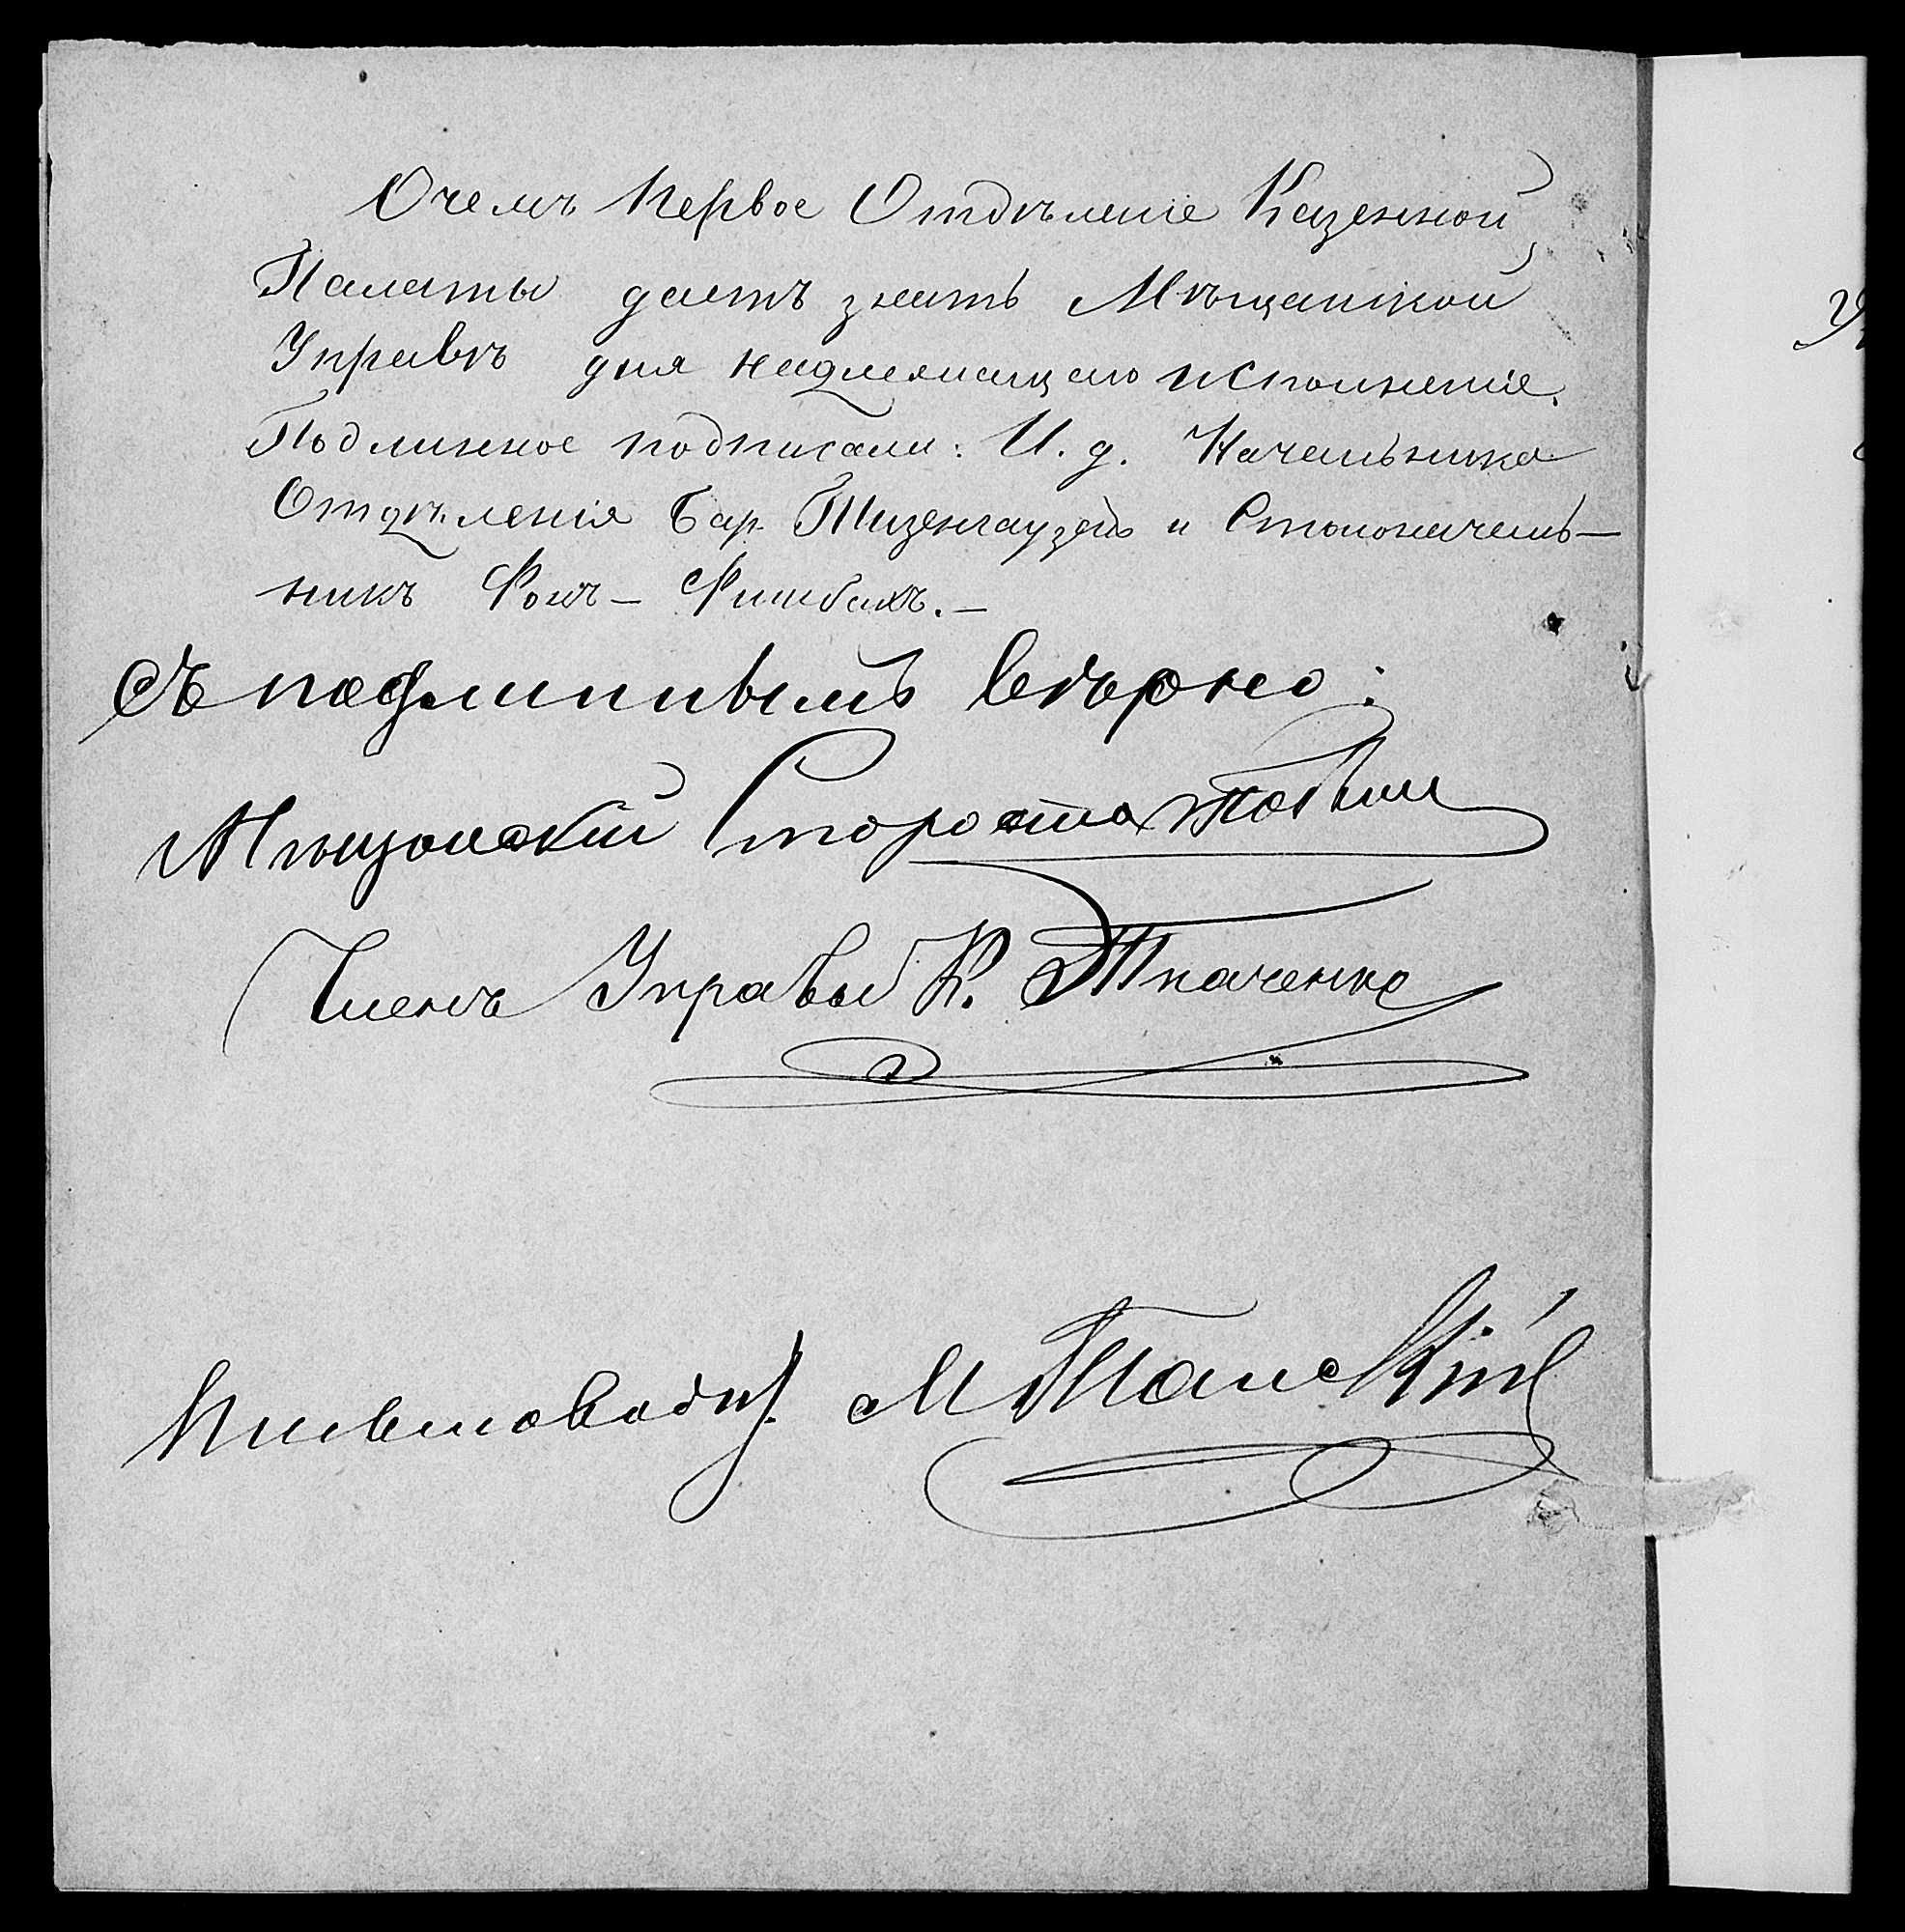 О чемъ Первое Отдѣленіе Казенной
Палаты даетъ знать Мѣщанской
Управѣ для надлежащаго исполненія.
Подлинное подписали: И. д. Начальника
Отдѣленія Бар. Тизенгаузенъ и Столоначаль-
никъ Фонъ-Фишбахъ.-
Съ подлиннымъ вѣрно:
Мѣщанскій Староста
Членъ Управы К. Ткаченко
Письмовод. М